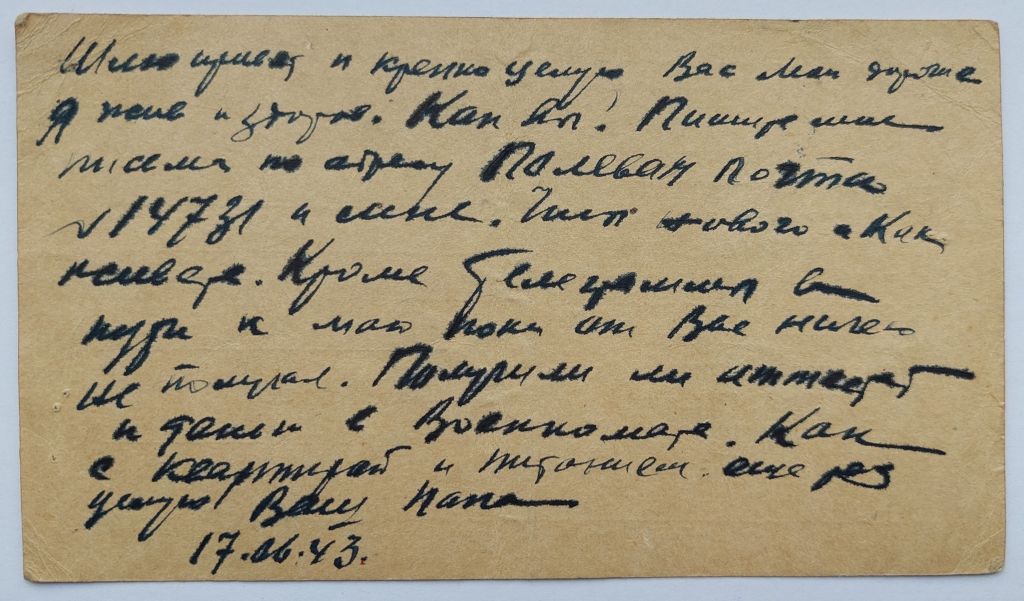 Шлю привет и крепко целую Вас мои дорогие
Я жив и здоров. Как Вы! Пишите мне
письма по адресу Полевая почта
14731 и мне. нового и Как
живете. Кроме телеграммы в
пути к маю пока от Вас ничего
не получал. Получили ли аттестат
и деньги с Военкомата. Как
с квартирой и питанием еще раз
целую Ваш папа
17.06.43.